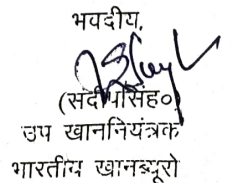 भवदीय,
(संदीपसिंह०)
उप खाननियंत्रक
भारतीय खानब्यूरो